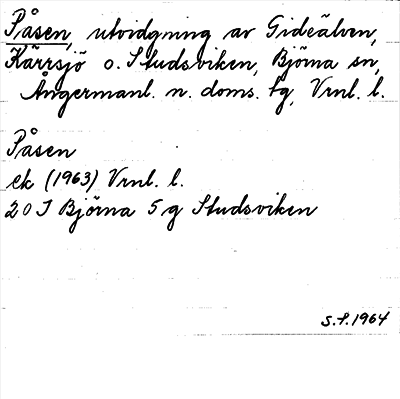 Påsen, utvidgning av Gideälven,
Kärrsjö o. Studsviken, Björna sn,
Ångermanl. n. doms. tg, Vrnl. l.
Påsen
ek (1963) Vrnl. l.
20 J Björna 5 g Studsviken
S.S. 1964